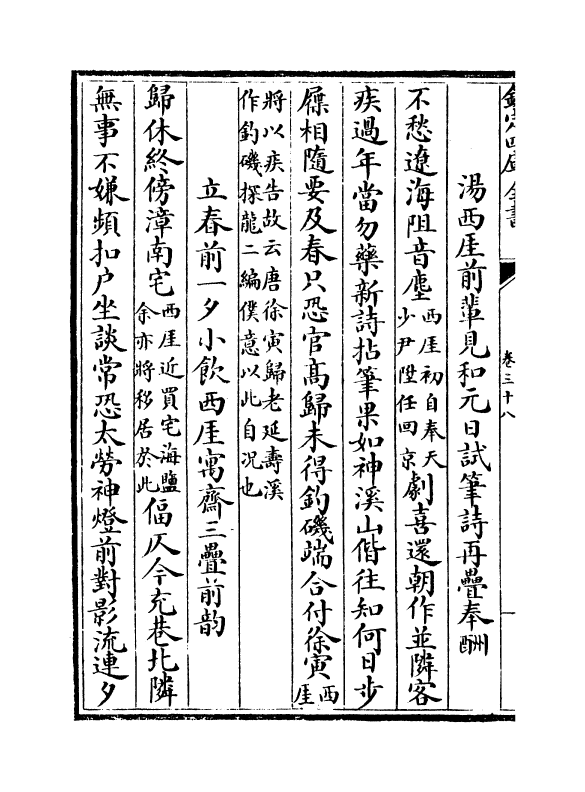 欽定四庫全書
卷三十八
湯西厓前輩見和元日試筆詩再疊奉酬
不愁遼海阻音塵西厓初自奉天少尹陞任回京劇喜還朝作並隣客
疾過年當勿藥新詩拈筆果如神溪山偕往知何日步
屧相隨要及春只恐官髙歸未得釣磯端合付徐寅西厓
將以疾告故云唐徐寅歸老延壽溪作釣磯探龍二編僕意以此自况也
立春前一夕小飲西厓寓齋三疊前韵
歸休終傍漳南宅西厓近買宅海鹽余亦將移居於此偪仄今充巷北隣
無事不嫌頻扣户坐談常恐太勞神燈前對影流連夕